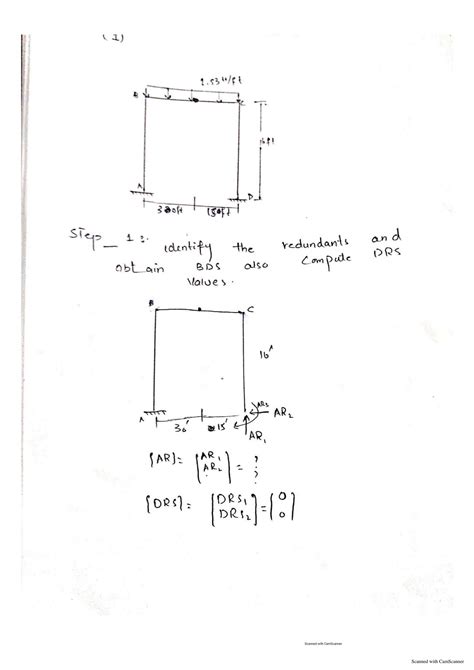 (1)
1.53 k/ft
B C
16ft
A D
30ft 15ft
Step_1:. identify the redundants and
obtain BDS also Compute DRS
Values.
B C
16'
AR3
A 30' 15' AR2
AR1
{AR}= {AR1 AR2 .} = ? ? ?
{DRS}= {DRS1 DRS2} = {0 0}
Scanned with CamScanner
Scanned with CamScanner